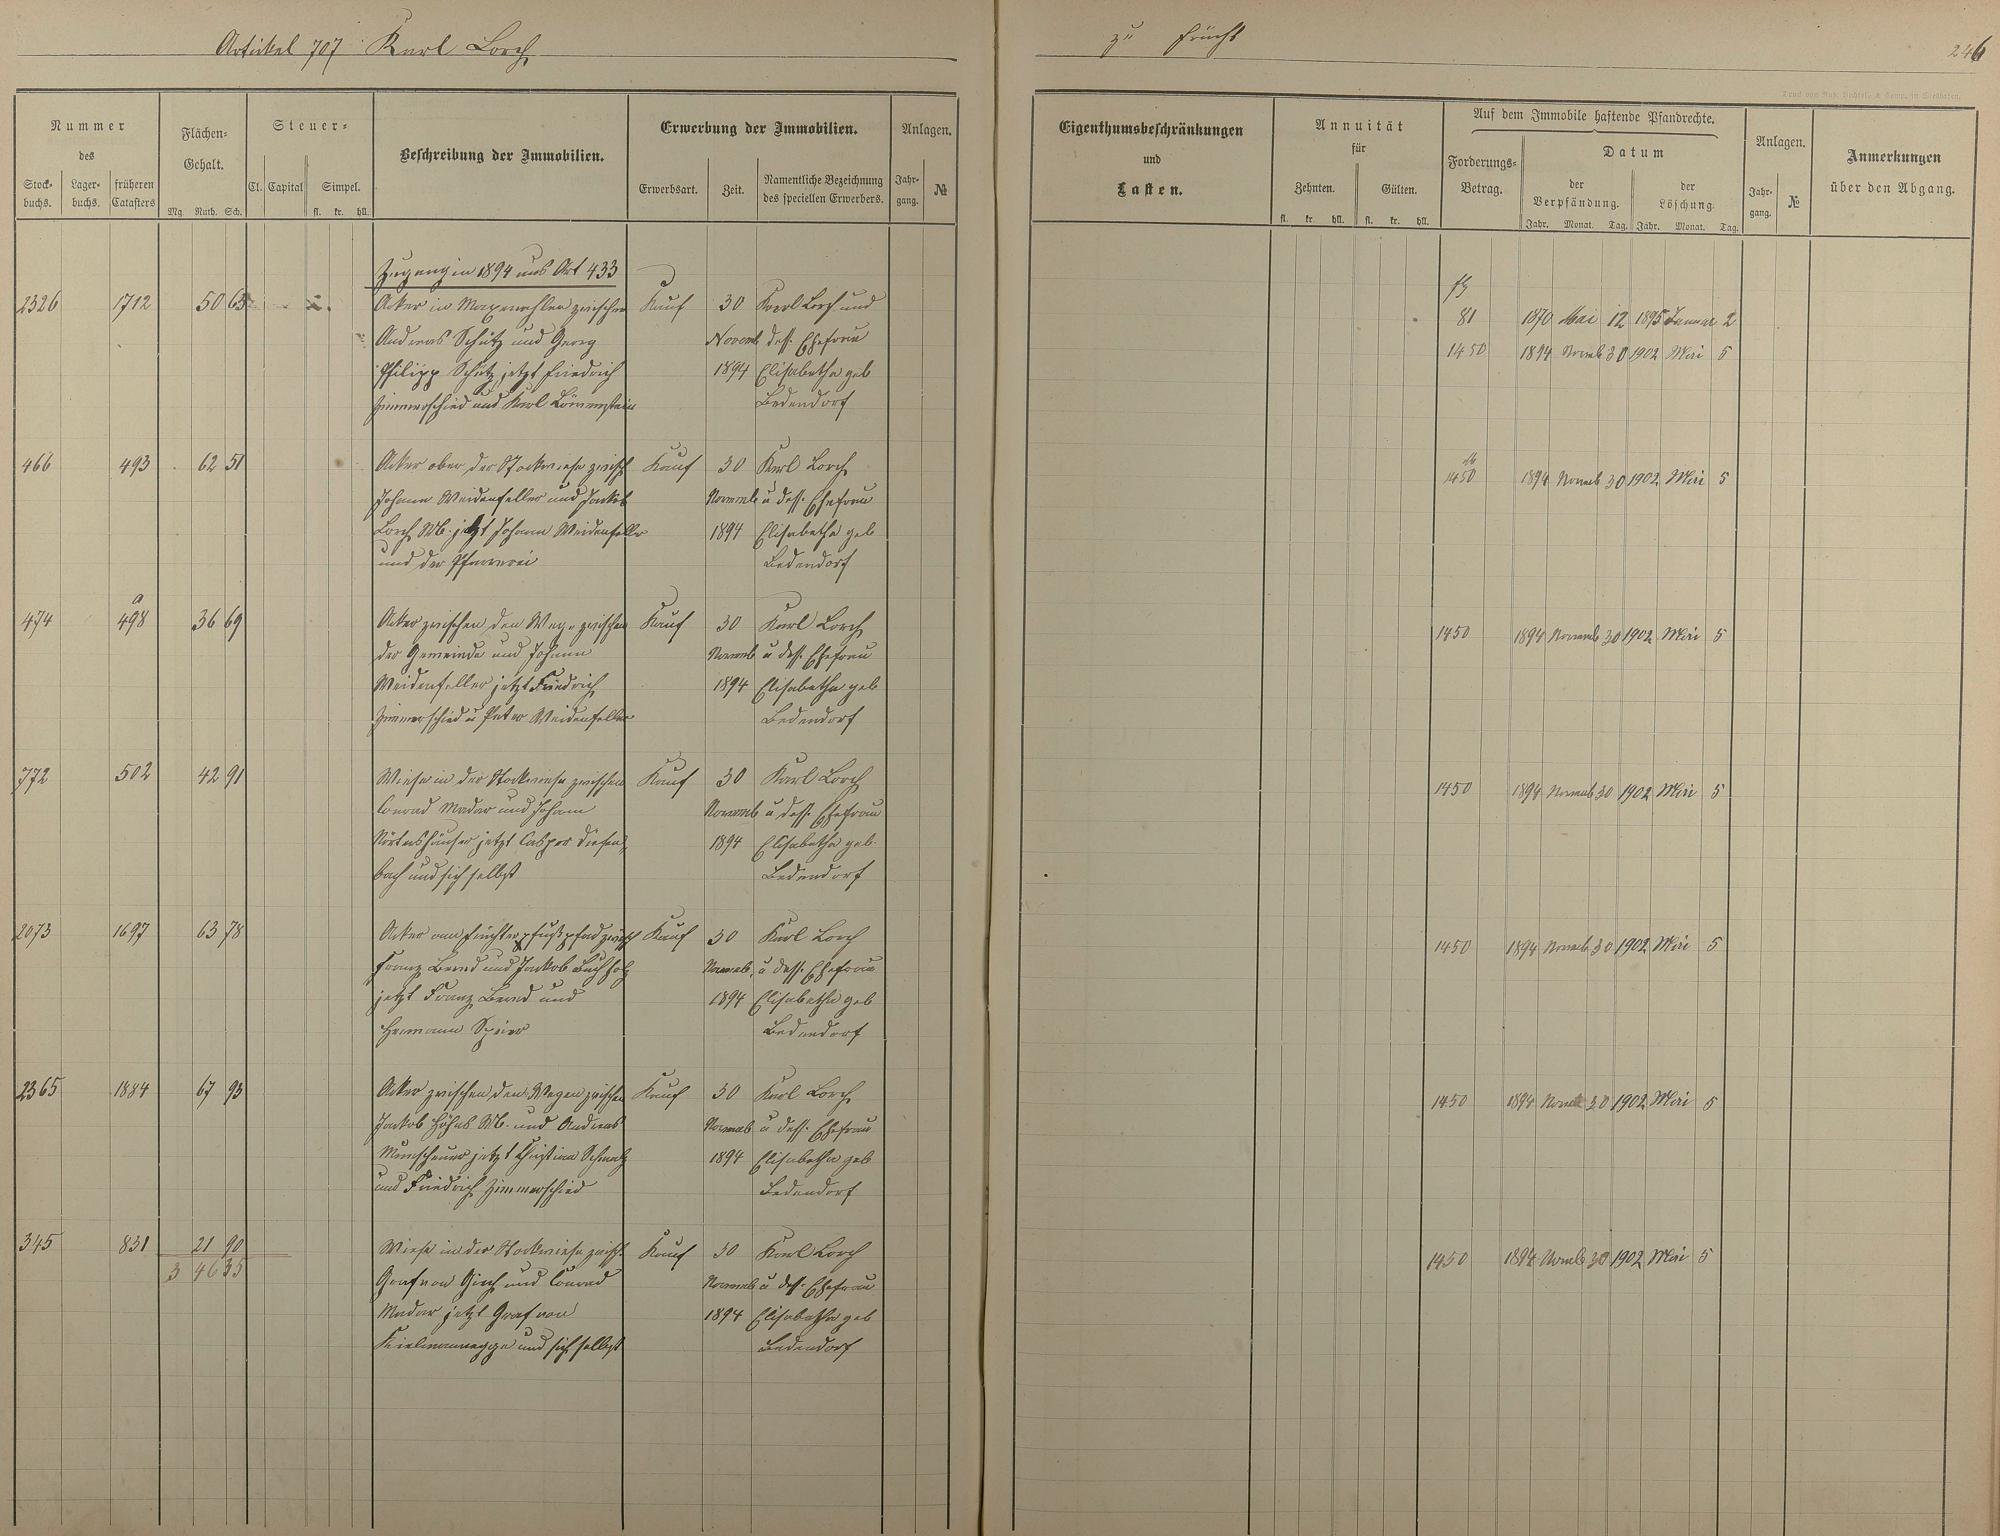 Artickel 707 Karl Lorch
zu Frücht
246
Nummer
des
Stock-
buchs.
Lager-
buchs.
früheren
Catasters
Flächen-
Gehalt.
Mg. Ruth. Sch.
Steuer-
Cl. Capital
Simpel.
fl. kr. hll.
Beschreibung der Immobilien.
Erwerbung der Immobilien.
Erwerbsart.
Zeit.
Namentliche Bezeichnung
des speciellen Erwerbers.
Anlagen.
Jahr-
gang.
№
Eigenthumsbeschränkungen
und
Lasten.
Annuität
für
Zehnten.
Gülten.
fl. kr. hll. fl. kr. hll.
Auf dem Immobile haftende Pfandrechte.
Forderungs-
Betrag.
Datum
der
Verpfändung.
der
Löschung.
Jahr. Monat. Tag. Jahr. Monat. Tag.
Anlagen.
Jahr-
gang.
№
Anmerkungen
über den Abgang.
Zugang in 1894 aus Art 433
2326 1712 50 63 Acker in zwischen Kauf 30 Karl Lorch und
Andreas Schütz und Georg Novemb dess. Ehefrau
Philipp Schütz jetzt Friedrich 1894 Elisabetha geb
Zimmerschied und Karl Löwenstein Bedendorf
81 1870 Mai 12 1895 Januar 2
1450 1894 Novemb 30 1902 Mai 5
466 493 62 51 Acker ober der Stockwiese zwisch Kauf 30 Karl Lorch
Johann Weidenfeller und Jackob Novemb u dess. Ehefrau
Lorch Mb. jetzt Johann Weidenfeller 1894 Elisabetha geb
und der Pfarrerei Bedendorf
1450 1894 Novemb 30 1902 Mai 5
a
474 498 36 69 Acker zwischen den Wege zwischen Kauf 30 Karl Lorch
der Gemeinde und Johann Novemb u dess. Ehefrau
Weidenfeller jetzt Friedrich 1894 Elisabetha geb
Zimmerschied u Peter Weidenfeller Bedendorf
1450 1894 Novemb 30 1902 Mai 5
772 502 42 91 Wiese in der Stockwiese zwischen Kauf 30 Karl Lorch
Conrad Madar und Johann Novemb u dess. Ehefrau
Nörtershäuser jetzt Caspar Diefen- 1894 Elisabetha geb.
bach und sich selbst Bedendorf
1450 1894 Novemb 30 1902 Mai 5
2073 1697 63 78 Acker am Früchter Fußpfad zwisch Kauf 30 Karl Lorch
Franz Bernd und Jackob Buchholz Novemb. u dess. Ehefrau
jetzt Franz Bernd und 1894 Elisabetha geb
Hermann Speier Bedendorf
1450 1894 Novemb 30 1902 Mai 5
2365 1884 67 93 Acker zwischen den Wegen zwischen Kauf 30 Karl Lorch
Jackob Höhns Mb. und Andreas Novemb u dess. Ehefrau
jetzt Christian und 1894 Elisabetha geb
und Friedrich Zimmerschied Bedendorf
1450 1894 Novemb 30 1902 Mai 5
345 831 21 90 Wiese in der Stockwiese zwisch. Kauf 30 Karl Lorch
3 46 35 Graf von Giech und Conrad Novemb u dess. Ehefrau
Madar jetzt Graf von 1894 Elisabetha geb
Kielmannegge und sich selbst Bedendorf
1450 1894 Novemb 30 1902 Mai 5